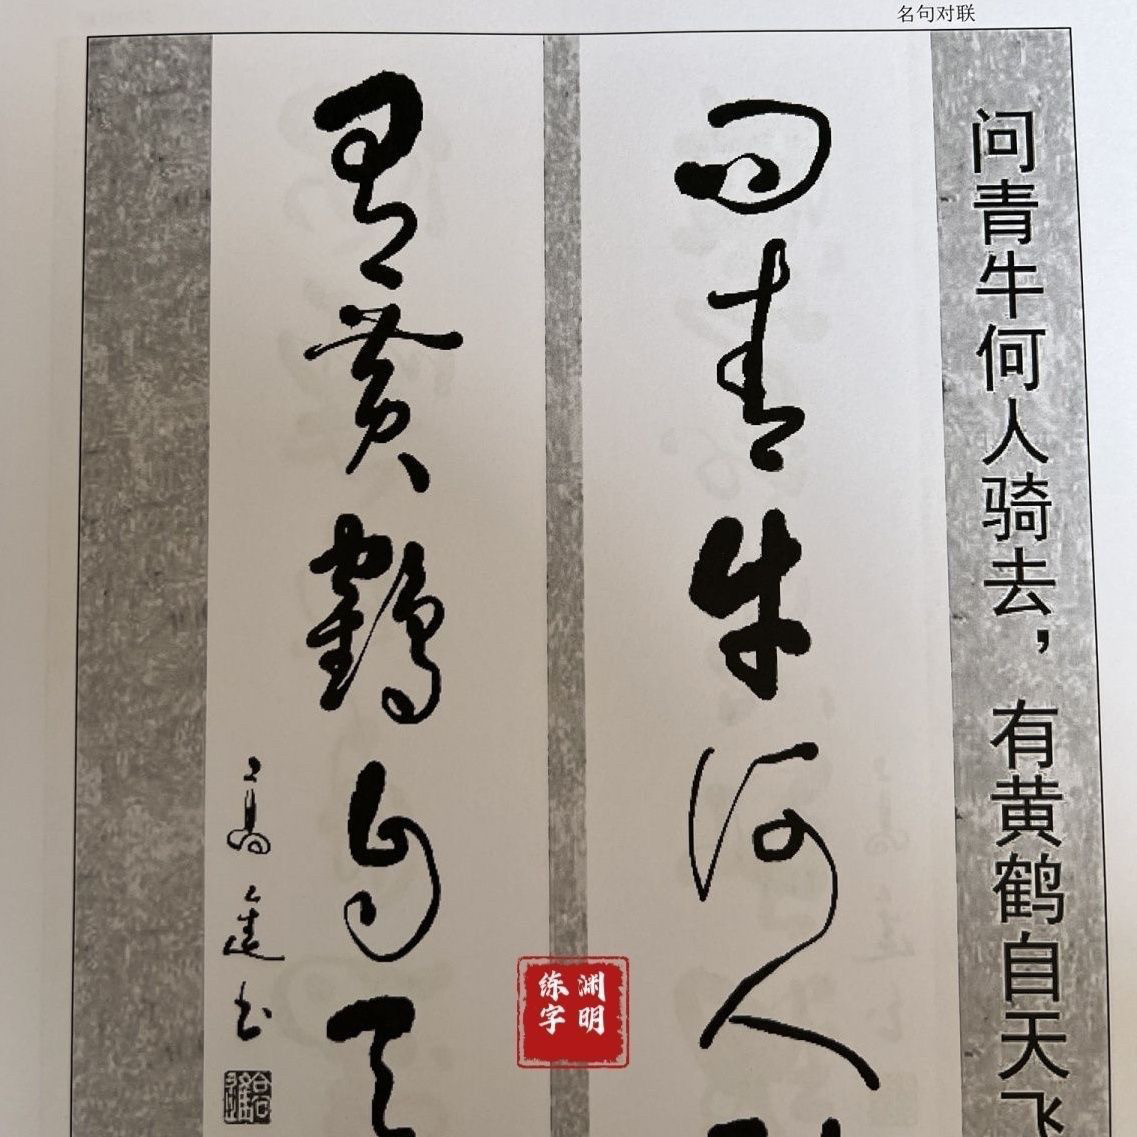 名句对联
问青牛何人骑去，有黄鹤自天飞
问青牛何人
有黄鹤自天
高连书
渊明
练字